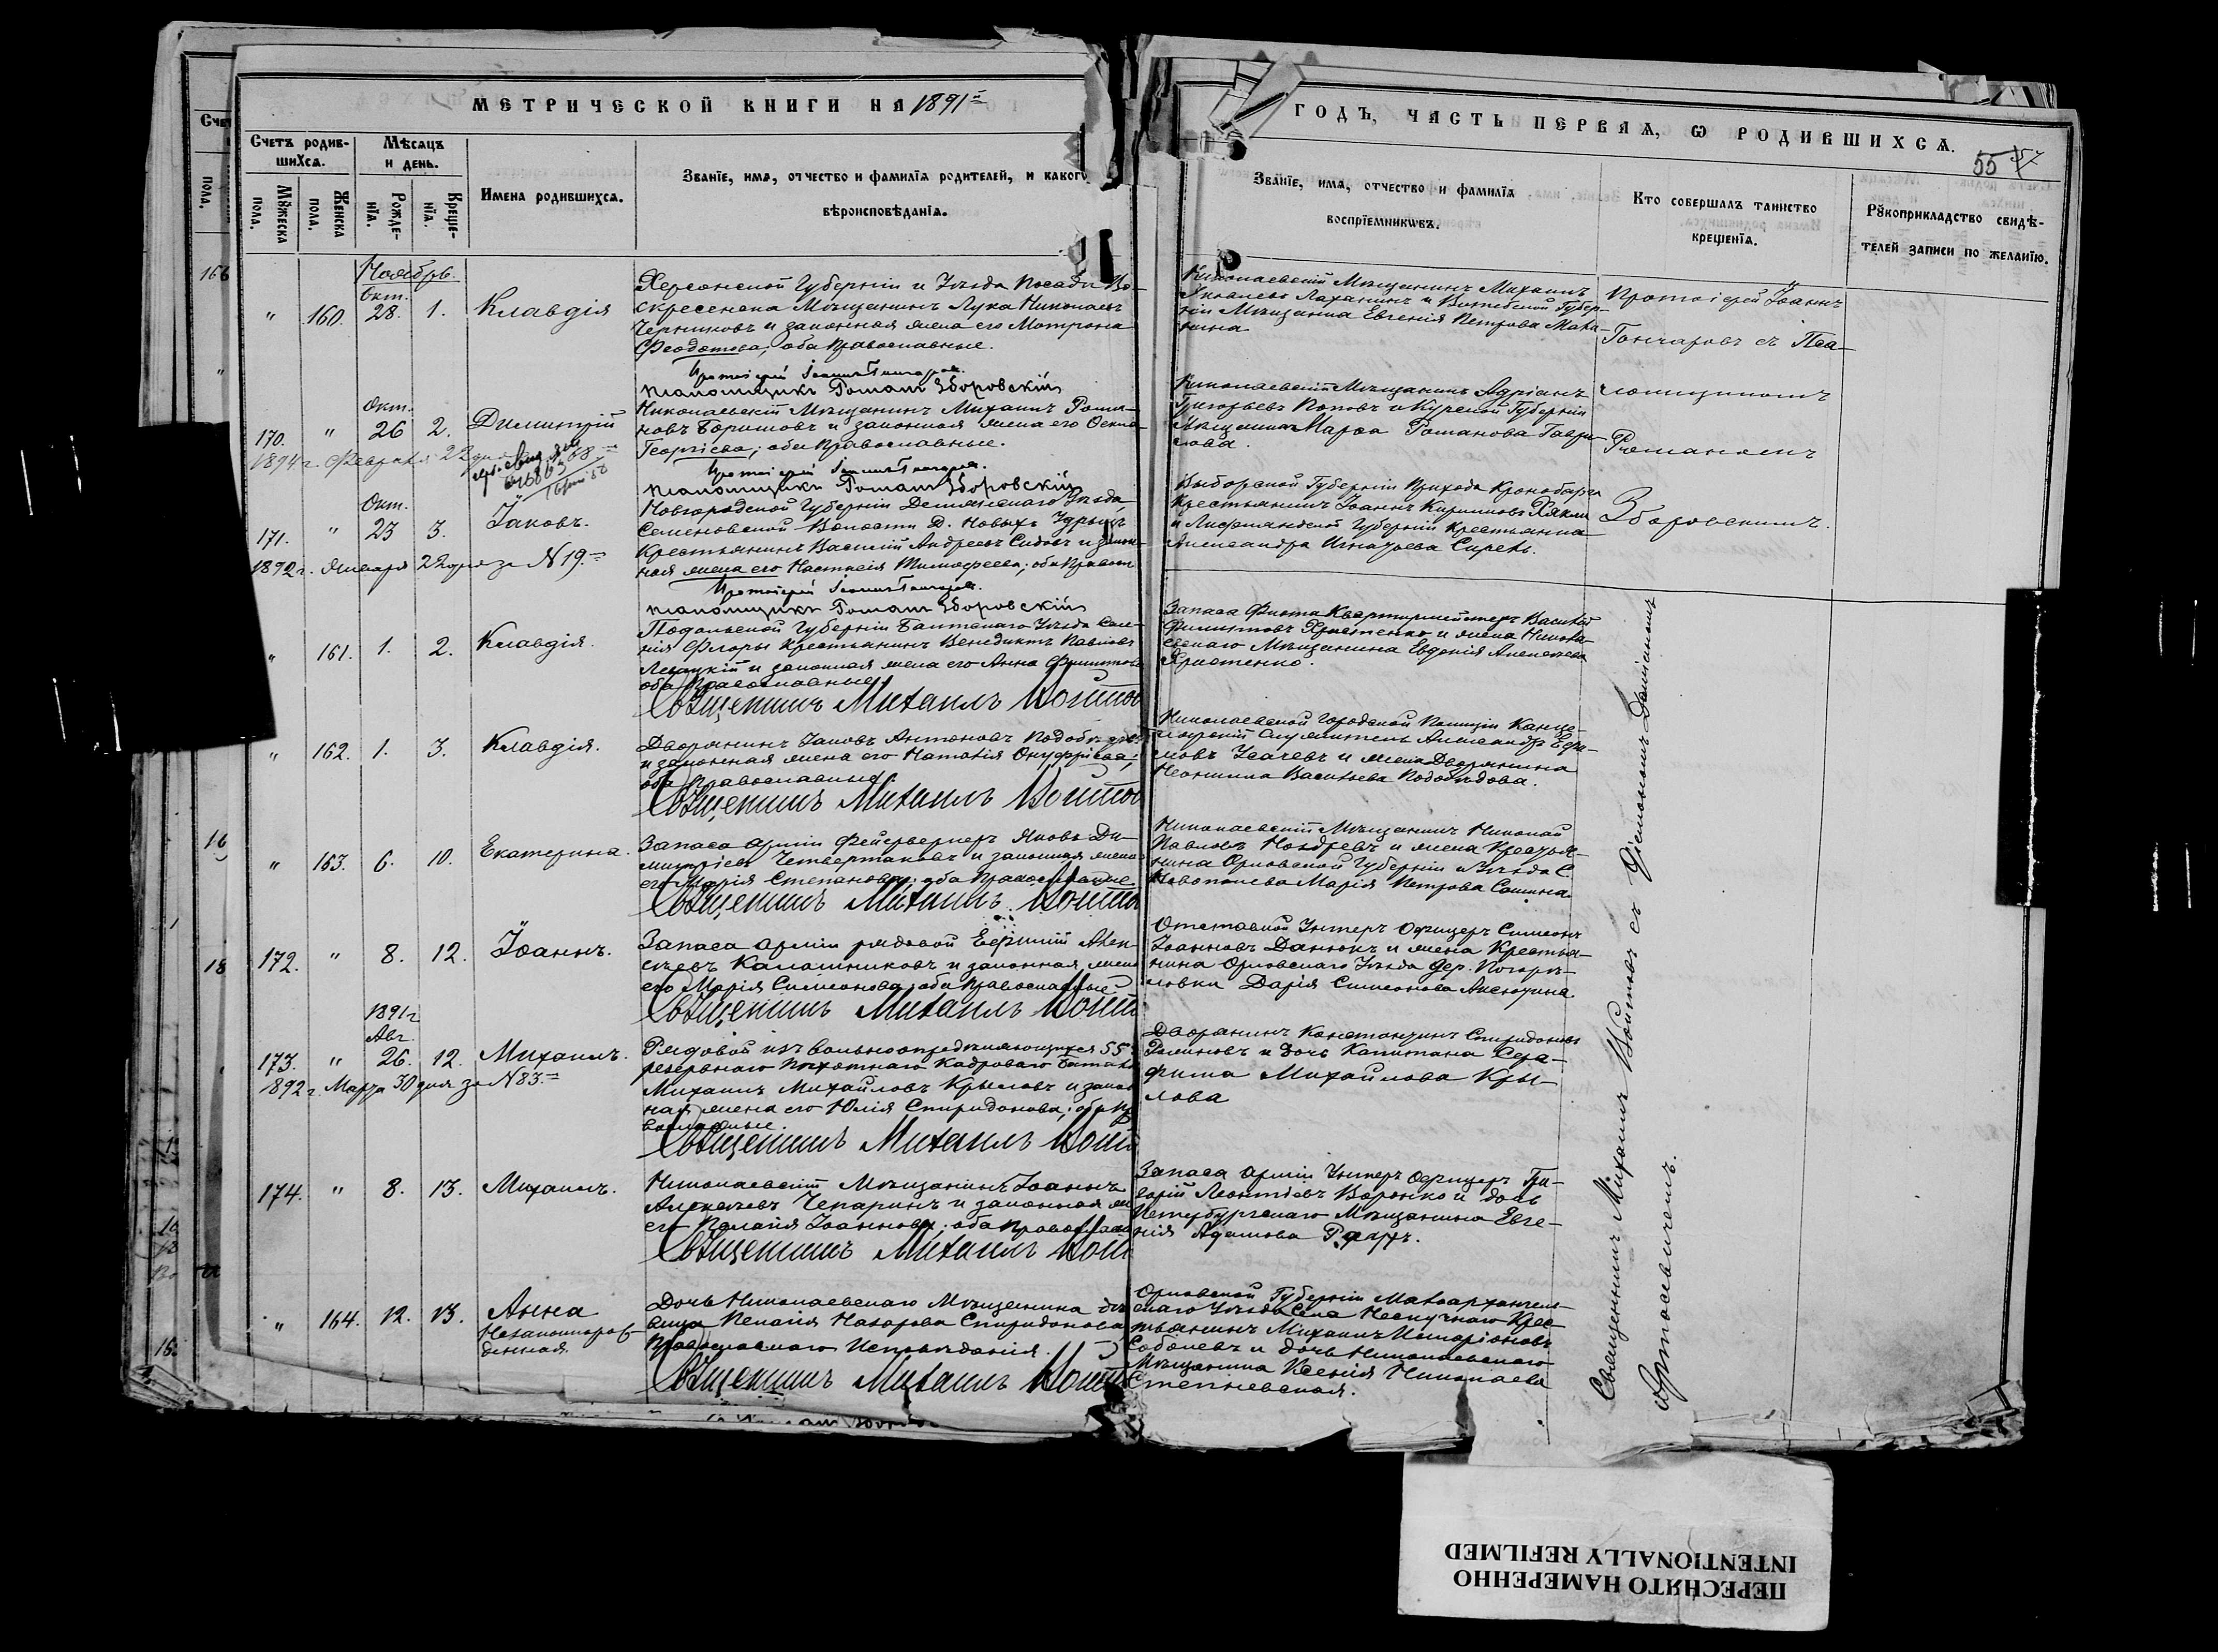 МЕТРИЧЕСКОЙ КНИГИ НА 1891 й
ГОДЪ, ЧАСТЬ ПЕРВАЯ, Ѡ РОДИВШИХСЯ.
55 57
Счетъ родив-
шихся.
Мѣсяцъ
и день.
Имена родившихся.
Званїе, имя, отчество и фамилїя родителей, и какого
вѣроисповѣданїя.
Мꙋжеска
пола.
Женска
пола.
Рожде-
нїя.
Креще-
нїя.
Званїе, имя, отчество и фамилїя
воспрїемникѡвъ.
Кто совершалъ таинство
крещенїя.
Рꙋкоприкладство свидѣ-
телей записи по желанїю.
Ноябрь.
" 160. Окт. 28. 1. Клавдія
Херсонской Губерніи и Уѣзда Посада Во-
скресенска Мѣщанинъ Лука Николаевъ
Черниковъ и законная жена его Матрона
Феодотова; оба Православные.
Протоіерей Іоаннъ Гончаровъ.
Псаломщикъ Романъ Зборовскій
Николаевскій Мѣщанинъ Михаилъ
Яковлевъ Лаханинъ и Витебской Губер-
ніи Мѣщанка Евгенія Петрова
Протоіерей Іоаннъ
Гончаровъ съ Пса-
ломщикомъ
Романомъ
Зборовскимъ.
170. " Окт. 26 2. Димитрій
1894 г. Февраля 22 дня
Николаевскій Мѣщанинъ Михаилъ Рома-
новъ Боримовъ и законная жена его Ксенія
Георгіева; оба Православные.
Протоіерей Іоаннъ Гончаровъ.
Псаломщикъ Романъ Зборовскій
Николаевскій Мѣщанинъ Адріанъ
Григорьевъ Поповъ и Курской Губерніи
Мѣщанка Марѳа Романова Гаври-
лова.
171. " Окт. 23 3. Іаковъ.
1892 г. Января 22 дня за N 19.
Новгородской Губерніи Демянскаго Уѣзда,
Семеновской Волости Д. Новыхъ
Крестьянинъ Василій Андреевъ Сидовъ и закон-
ная жена его Настасія Тимофеева; оба Правосл
Протоіерей Іоаннъ Гончаровъ.
Псаломщикъ Романъ Зборовскій
Выборгской Губерніи Прихода Кронобарга
Крестьянинъ Іоаннъ Кириловъ
и Лифляндской Губерніи Крестьянка
Александра Игнатьева Сирень.
" 161. 1. 2. Клавдія.
Подольской Губерніи Балтскаго Уѣзда Селе-
нія Флоры Крестьянинъ Венедиктъ Павловъ
Левицкій и законная жена его Анна Филиппова
оба Православные.
Священникъ Михаилъ Войтов
Запаса Флота Квартирмейстеръ Василій
Филипповъ Христенко и жена Никола-
евскаго Мѣщанина Евдокія Алексѣева
Христенко.
" 162. 1. 3. Клавдія.
Дворянинъ Іаковъ Антоновъ Подобѣдовъ
и законная жена его Наталія Онуфріева;
оба Православные.
Священникъ Михаилъ Войтов
Николаевской Городской Полиціи Канце-
лярскій Служитель Александръ Ефи-
мовъ Усачевъ и жена Дворянина
Неонила Васильева Подобѣдова.
" 163. 6. 10. Екатерина.
Запаса Арміи Фейерверкеръ Яковъ Ди-
митріевъ Четвертаковъ и законная жена
его Марія Степанова; оба Православные
Священникъ Михаилъ Войтов
Николаевскій Мѣщанинъ Николай
Павловъ Ноздревъ и жена Крестья-
нина Орловской Губерніи и Уѣзда С.
Марія Петрова Сошина
172. " 8. 12. Іоаннъ.
Запаса Арміи рядовой Ефимій Алек-
сѣевъ Калашниковъ и законная жена
его Марія Симеонова; оба Православные
Священникъ Михаилъ Войтов
Отставной Унтеръ Офицеръ Симеонъ
Іоанновъ Данюкъ и жена Крестья-
нина Орловскаго Уѣзда Дер. Погорѣ-
ловки Дарія Симеонова Аксютина
173. " 1891 г. Авг. 26. 12. Михаилъ.
1892 г. Марта 30 дня за N 83.
Рядовой изъ вольноопредѣляющихся 55
резервнаго пѣхотнаго Кадроваго Батал
Михаилъ Михайловъ Крыловъ и закон
ная жена его Юлія Спиридонова; оба Пр
вославные.
Священникъ Михаилъ Войт
Дворянинъ Константинъ Спиридоновъ
и дочь Капитана Сера-
фима Михайлова Кры-
лова
174. " 8. 13. Михаилъ.
Николаевскій Мѣщанинъ Іоаннъ
Алексѣевъ Чепаринъ и законная же
его Пелагія Іоаннова; оба Православ
Священникъ Михаилъ Войт
Запаса Арміи Унтеръ Офицеръ Гри-
горій Леонтіевъ Воронко и дочь
Петербургскаго Мѣщанина Евге-
нія Адамова
" 164. 12. 13. Анна
Незаконнорож-
денная.
Дочь Николаевскаго Мѣщанина дѣ-
вица Пелагія Назарова Спиридонова
Православнаго Исповѣданія.
Священникъ Михаилъ Войтов
Орловской Губерніи Малоархангель-
скаго Уѣзда Села Нескучнаго Крес-
тьянинъ Михаилъ Иларіоновъ
Соболевъ и дочь Николаевскаго
Мѣщанина Ксенія Николаева
Степневская.
Священникъ Михаилъ Войтовъ съ Діакономъ Даміаномъ
ПЕРЕСНЯТО НАМЕРЕННО
INTENTIONALLY REFILMED